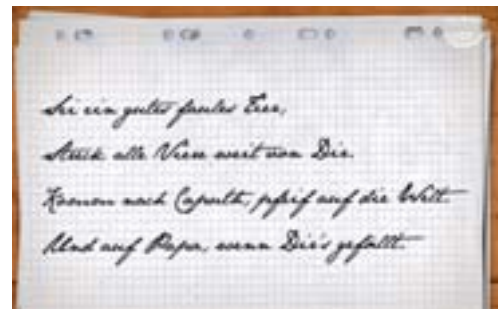 Sei ein gutes faules Tier,
Streck alle Viere weit von Dir.
Komm nach Caputh, pfeif auf die Welt.
Und auf Papa, wenn Dir's gefällt.